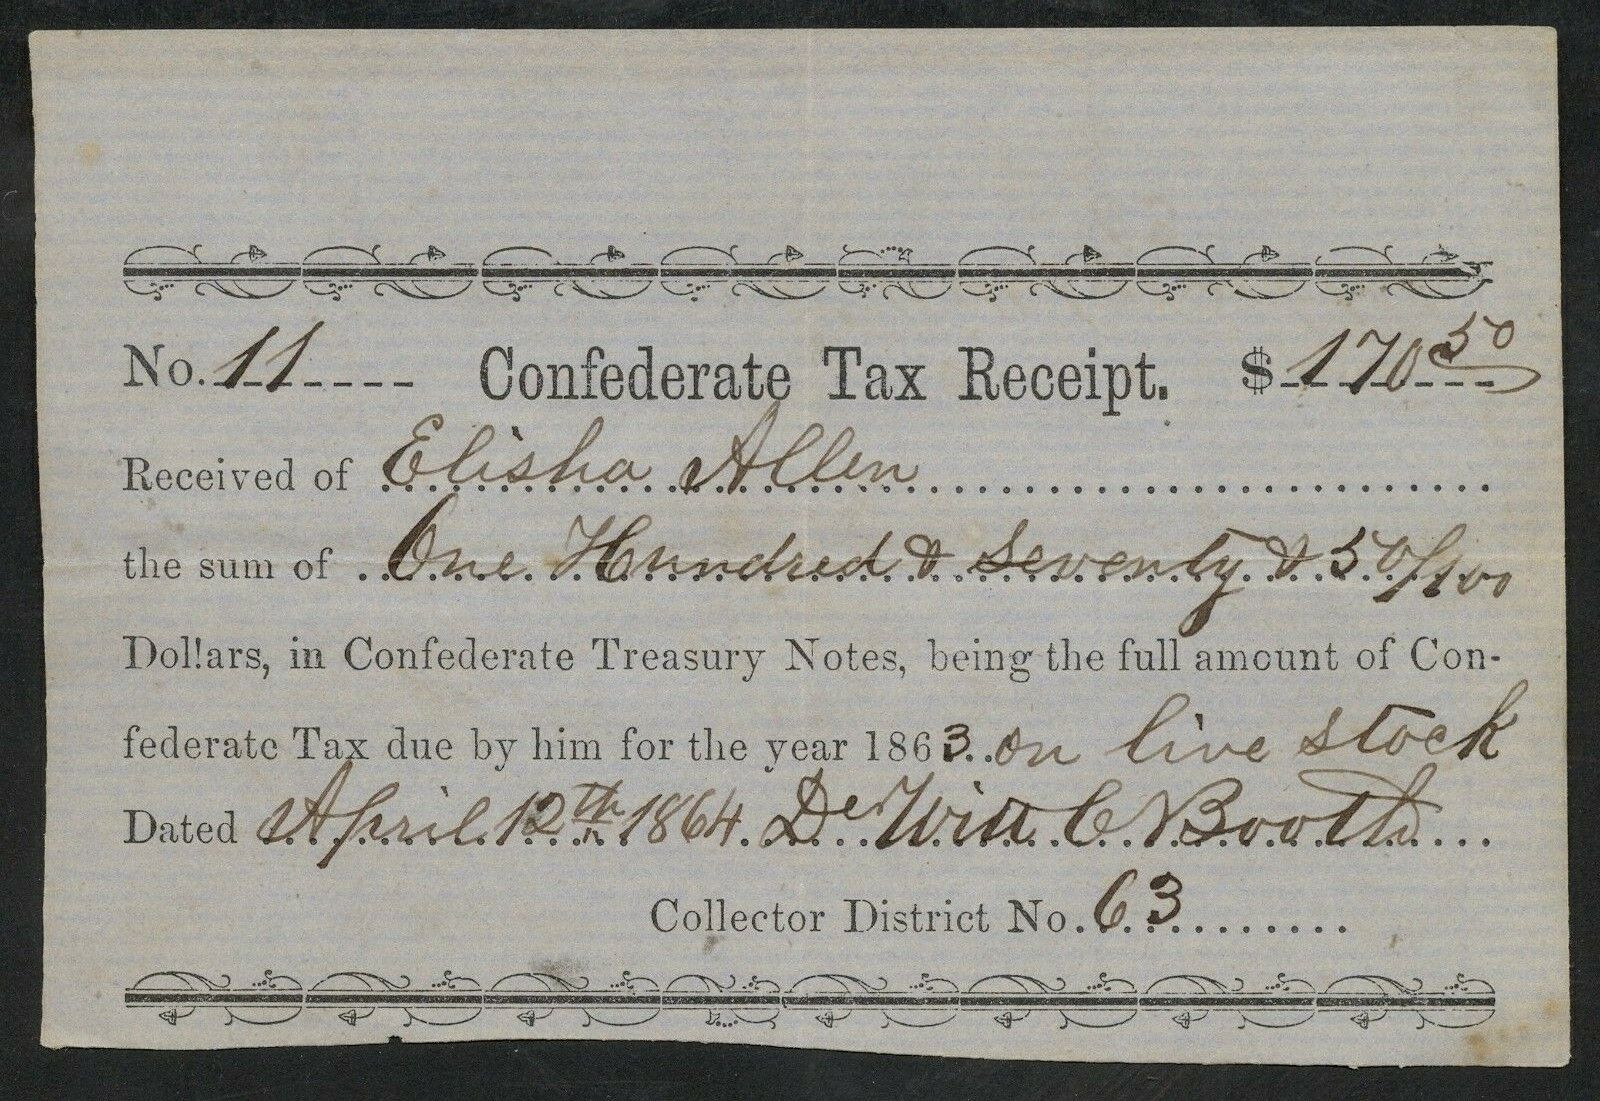 No. 11 Confederate Tax Receipt. $170 50
Received of Elisha Allen
the sum of One Hundred & Seventy & 50/100
Dollars, in Confederate Treasury Notes, being the full amount of Con-
federate Tax due by him for the year 1863 on live stock
Dated April 12th 1864. DeWitt C Booth
Collector District No. 63